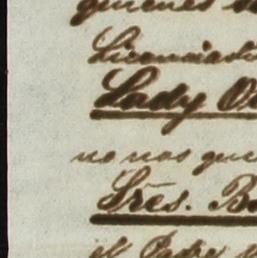 quienes
Licenciado
Lady
no nos que
Sres.
el Padre